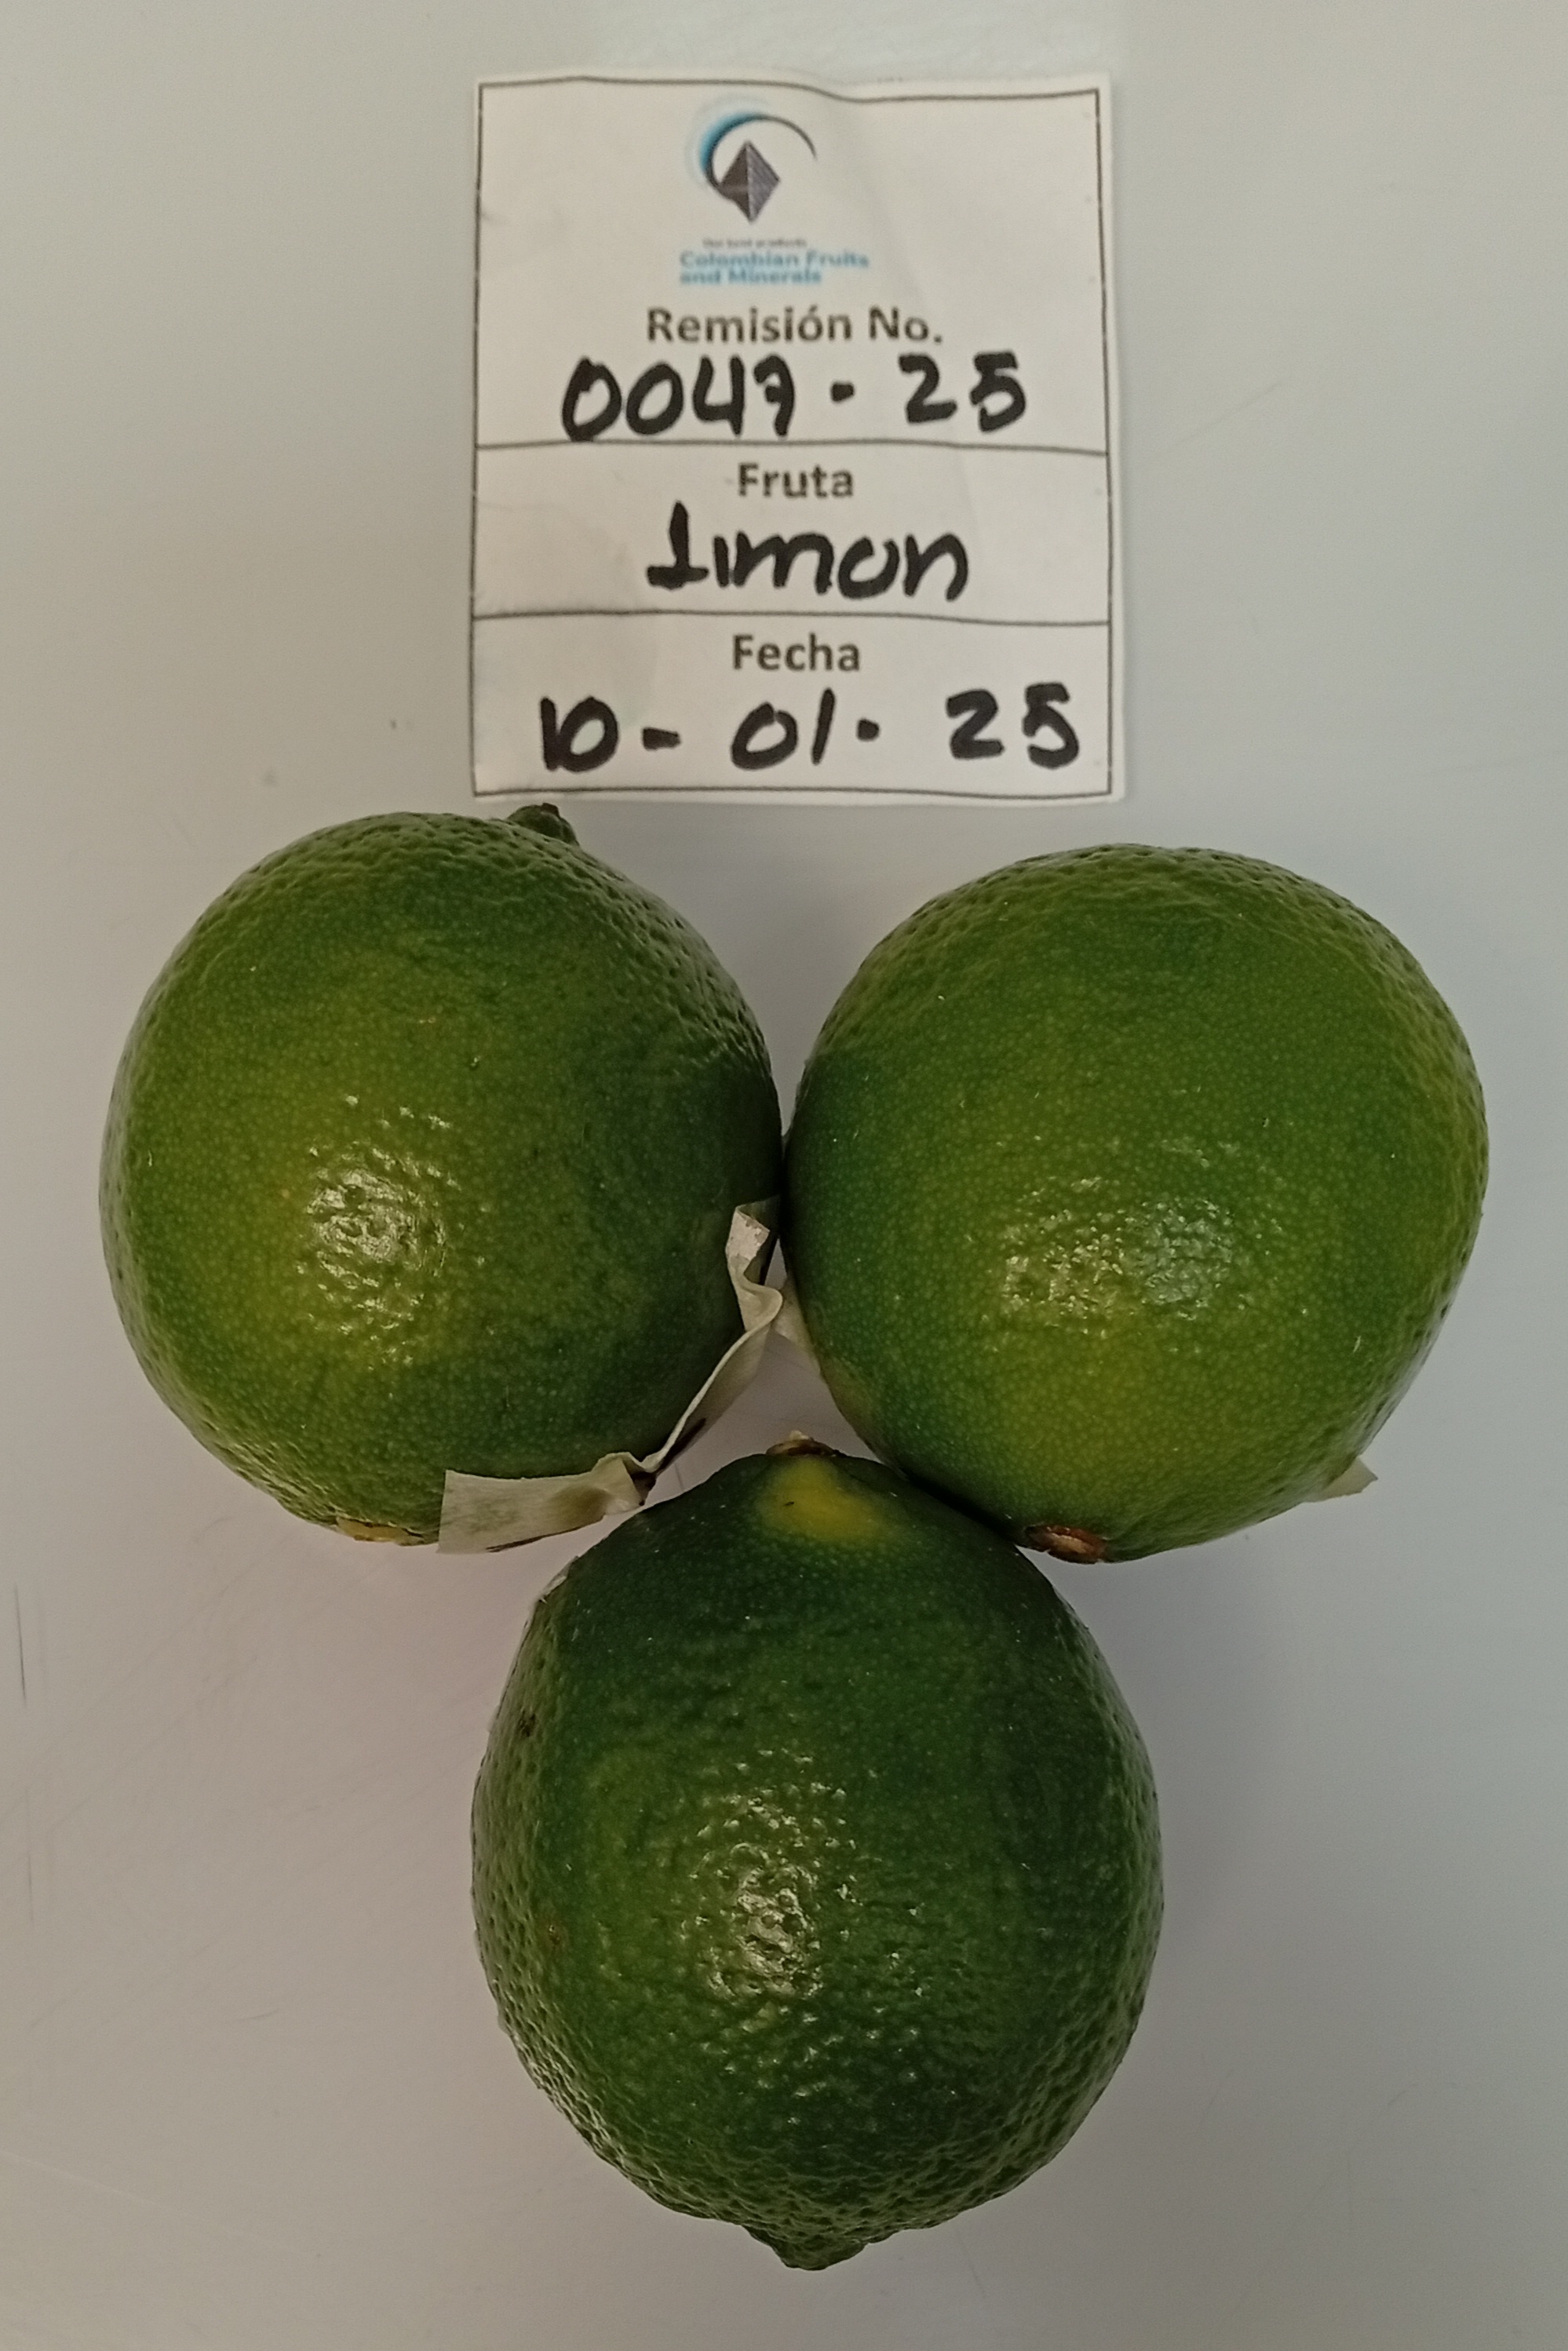 Our best products
Colombian Fruits
and Minerals
Remisión No.
0047 - 25
Fruta
Limon
Fecha
10 - 01 - 25